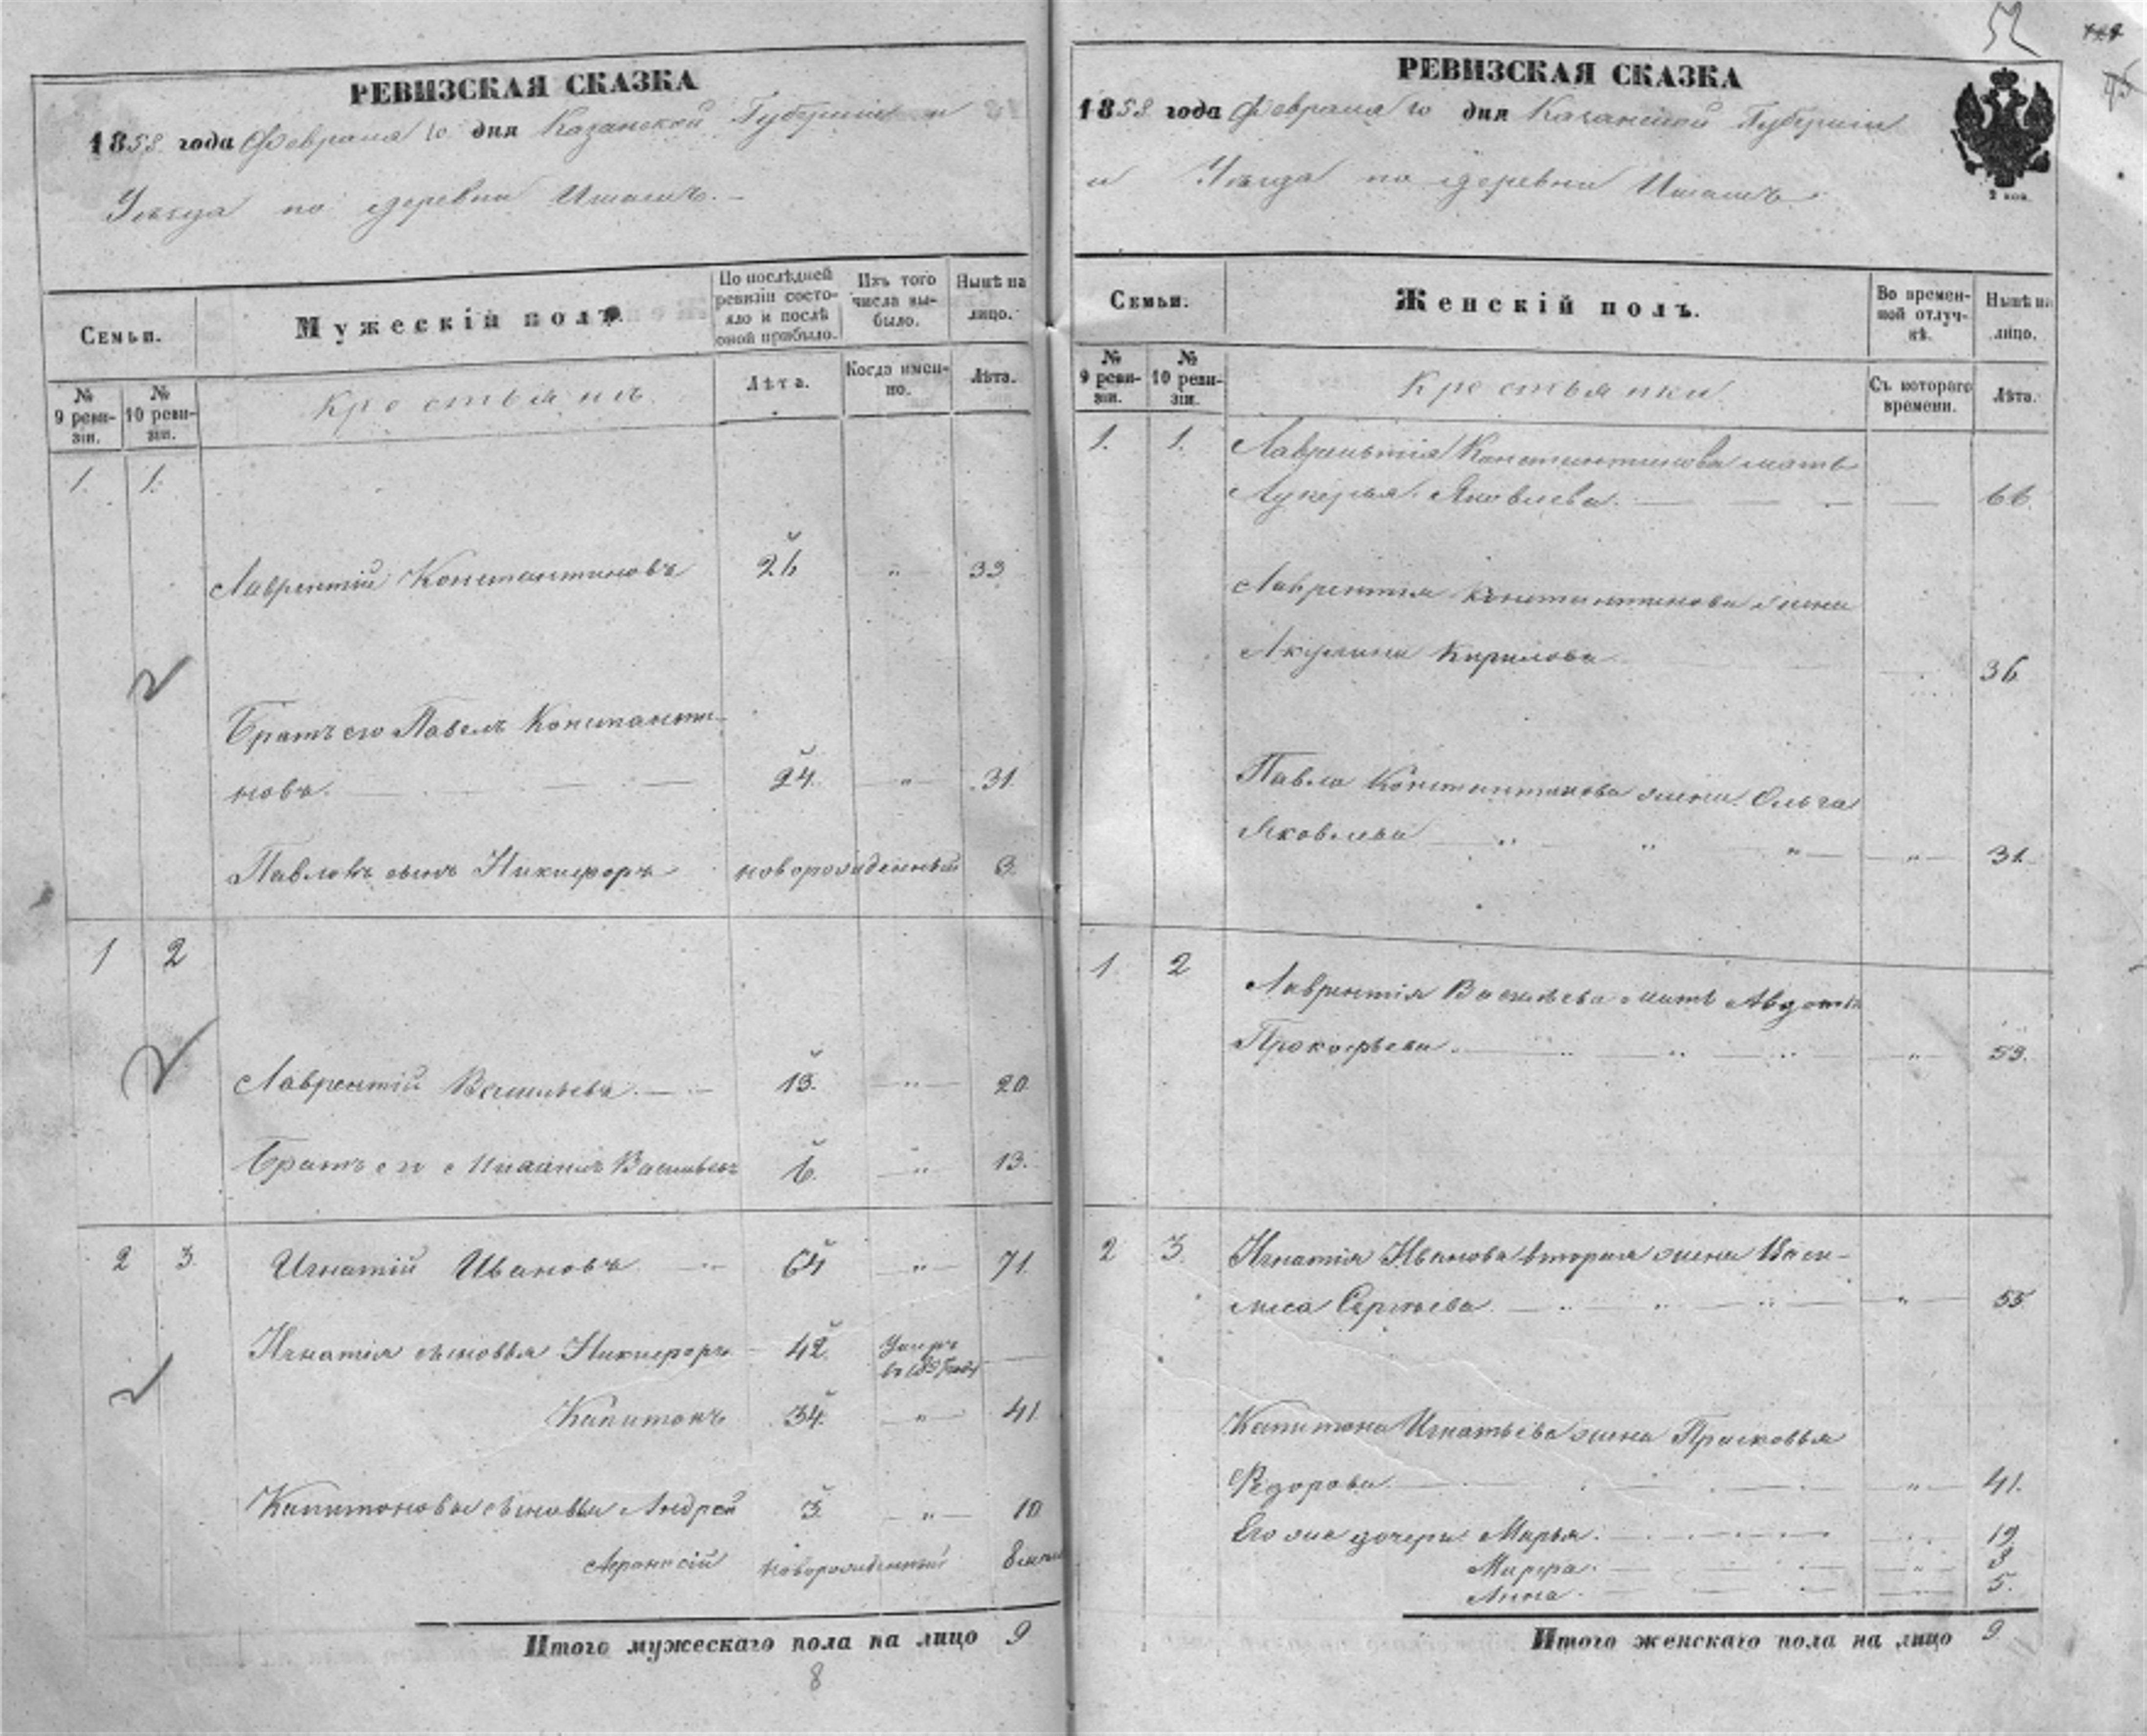 РЕВИЗСКАЯ СКАЗКА
1858 года Февраля 10 дня Казанской Губерніи и
Уѣзда по деревни
Семьи.
Мужескій полъ.
По послѣдней ревизіи состояло и послѣ оной прибыло.
Изъ того числа выбыло.
Нынѣ на лицо.
№ 9 ревизіи.
№ 10 ревизіи.
Крестьянъ
Лѣта.
Когда именно.
Лѣта.
1. 1.
Лаврентій Константиновъ 26 " 33
Братъ его Павелъ Константи-
новъ. 24. " 31.
Павловъ сынъ Никифоръ новорожденный 3.
1 2
Лаврентій Васильевъ. 13. " 20
Братъ его Васильевъ 6. " 13.
2 3.
Игнатій Ивановъ 64 " 71.
Игнатія сыновья Никифоръ 42. Умеръ
въ Году
Капитонъ 34. " 41
Капитоновы сыновья Андрей 3. " 10
Афанасій новорожденный 8
Итого мужескаго пола на лицо 9
8
52
РЕВИЗСКАЯ СКАЗКА
1858 года Февраля 10 дня Казанской Губерніи
и Уѣзда по деревни
2 коп.
Семьи.
Женскій полъ.
Во временной отлучкѣ.
Нынѣ на лицо.
№ 9 ревизіи.
№ 10 ревизіи.
Крестьянки
Съ котораго времени.
Лѣта.
1. 1.
Лаврентія Константинова мать
Лукерья Яковлева. 66.
Лаврентія Константинова жена
Акулина Кирилова 36
Павла Константинова жена Ольга
Яковлева " " " " 31.
1 2
Лаврентія Васильева мать Авдотья
Прокофьева. " " " " 53.
2 3.
Игнатія Иванова вторая жена Васи-
лиса Сергѣева. " " " " 55
Капитона Игнатьева жена Прасковья
Федорова " 41.
Его же дочери Марья. 19
Марфа. " 8
Анна. 5.
Итого женскаго пола на лицо 9